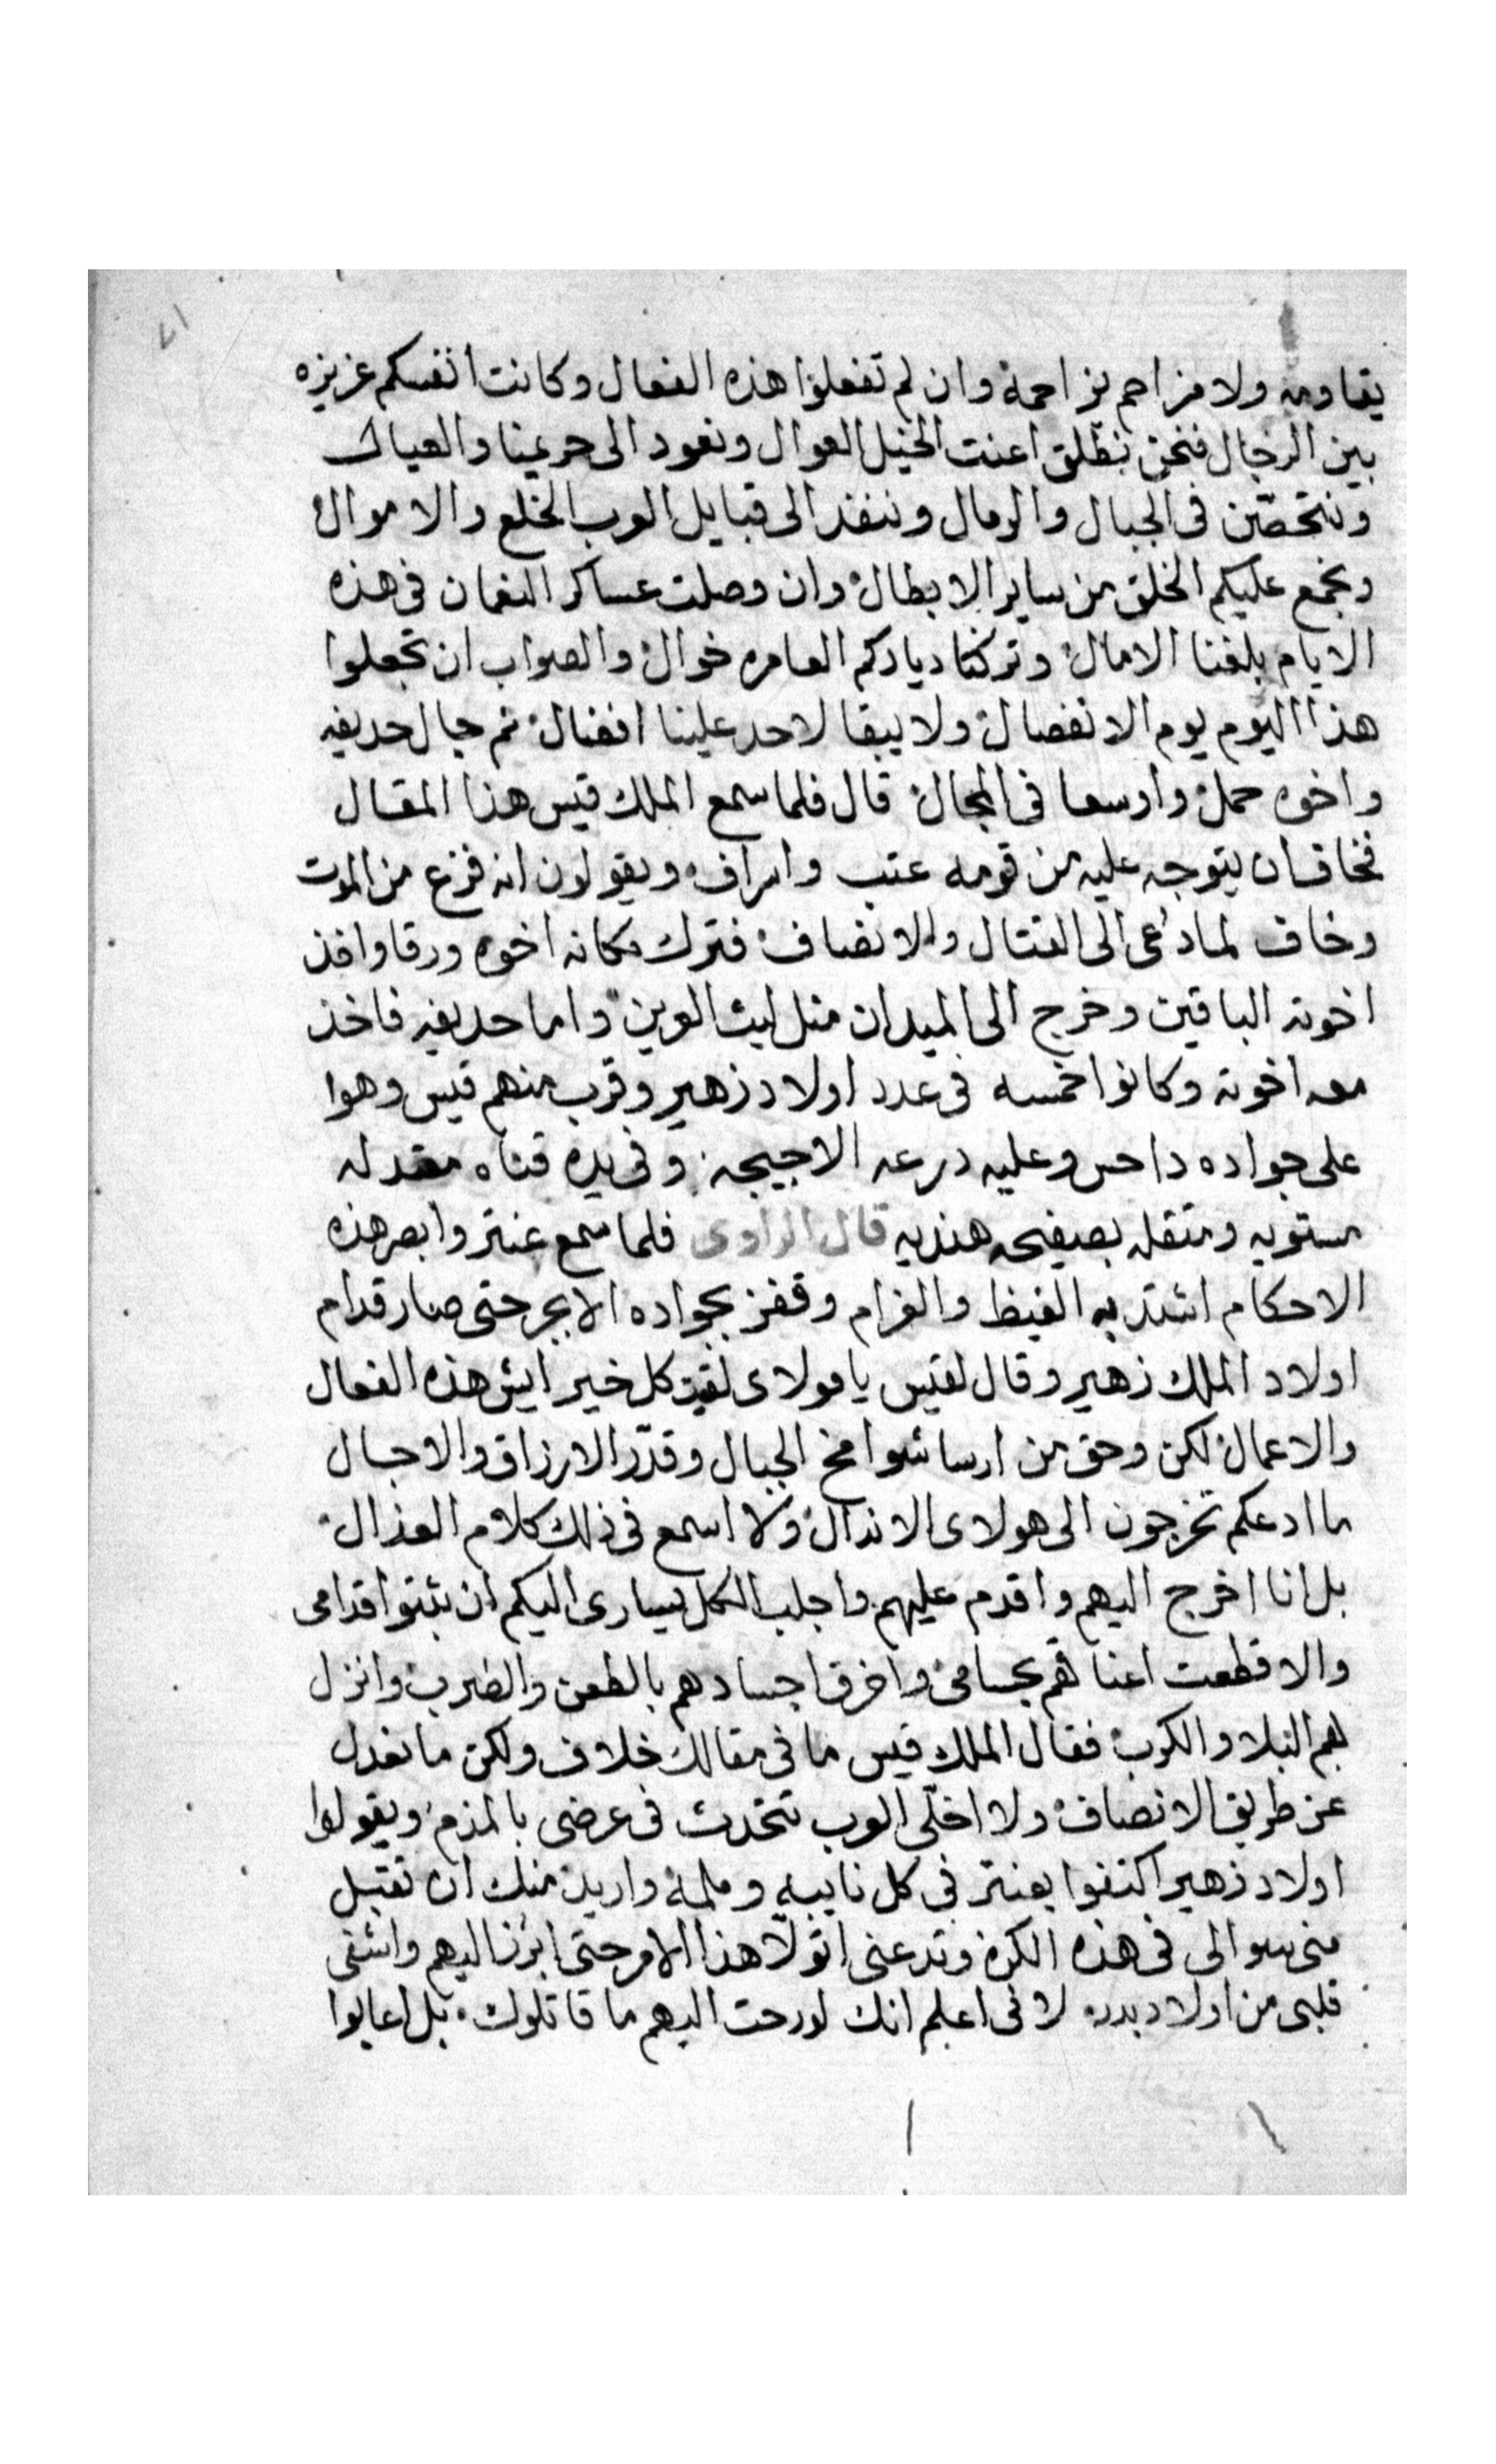 ٢١
يقاومه ولا مزاحم يزاحمه وان لم تفعلوا هذه الفعال وكانت انفسكم عزيزه
بين الرجال فنحن نطلق اعنت الخيل العوال ونعود الى حريمنا والعيال
ونتحصّن في الجبال والرمال وننفذ الى قبايل العرب الخلع والاموال
ونجمع عليكم الخلق من ساير الابطال وان وصلت عساكر النعمان في هذه
الايام بلغنا الامال وتركنا دياركم العامره خوال والصواب ان تجعلوا
هذا اليوم يوم الانفصال ولا يبقا لاحد علينا افضال ثم جال حديفه
واخوه حمل واوسعا في المجال قال فلما سمع الملك قيس هذا المقال
فخاف ان يتوجه عليه من قومه عتب واسراف ويقولون انه فزع من الموت
وخاف لما دُعى الى القتال والانصاف فترك مكانه اخوه ورقا واخذ
اخوته الباقين وخرج الى الميدان مثل ليث العرين واما حديفه فاخذ
معه اخوته وكانوا خمسه في عدد اولاد زهير وقرب منهم قيس وهوا
على جواده داحس وعليه درعه الاجيجه وفي يده قناه معتدله
مستويه ومتقله بصفيحه هنديه قال الراوى فلما سمع عنتر وابصر هذه
الاحكام اشتد به الغيظ والغرام وقفز بجواده الابجر حتى صار قدام
اولاد الملك زهير وقال لقيس يا مولاى لقيت كل خير ايش هذه الفعال
والاعمال لكن وحق من ارسا شوامخ الجبال وقدّر الارزاق والاجال
ما ادعكم تخرجون الى هولاى الاندال ولا اسمع في ذلك كلام العذال
بل انا اخرج اليهم واقدم عليهم واجلب الكل يسارى اليكم ان ثبتوا قدامى
والا قطعت اعناقهم بحسامى واخرق اجسادهم بالطعن والضرب وانزل
بهم البلا والكرب فقال الملك قيس ما في مقالك خلاف ولكن ما نعدل
عن طريق الانصاف ولا اخلّى العرب تتحدث في عرضى بالمذم ويقولوا
اولاد زهير اكتفوا بعنتر في كل نايبه وملمه واريد منك ان تقبل
منى سوالى في هذه الكره وتدعنى اتولّا هذا الامر حتى ابرز اليهم واشفى
قلبى من اولاد بدر لانى اعلم انك لو رحت اليهم ما قاتلوك بل اعابوا